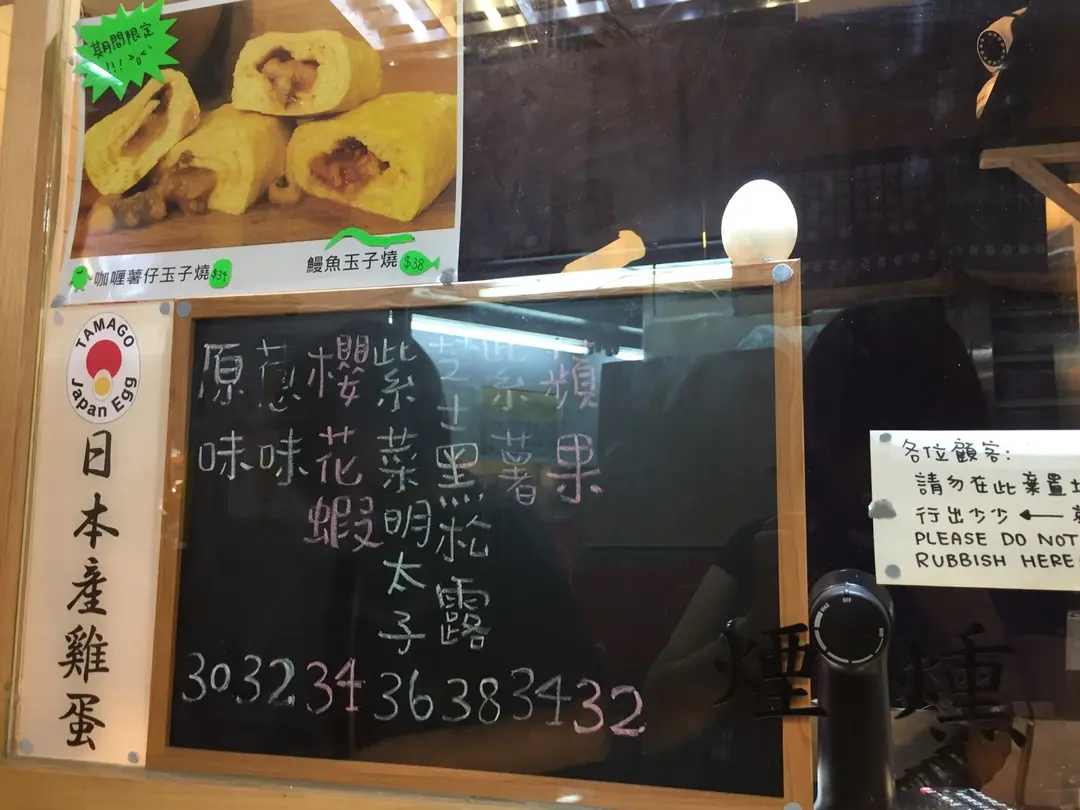 期間限定
!!! >o<
咖喱薯仔玉子燒 $34
鰻魚玉子燒 $38
TAMAGO
Japan Egg
日本產雞蛋
原味
蔥味
櫻花蝦
紫菜明太子
芝士黑松露
紫薯
蘋果
30 32 34 36 38 34 32
各位顧客:
請勿在此棄置
行出少少 ←
PLEASE DO NOT
RUBBISH HERE
煙燻
MAX OFF